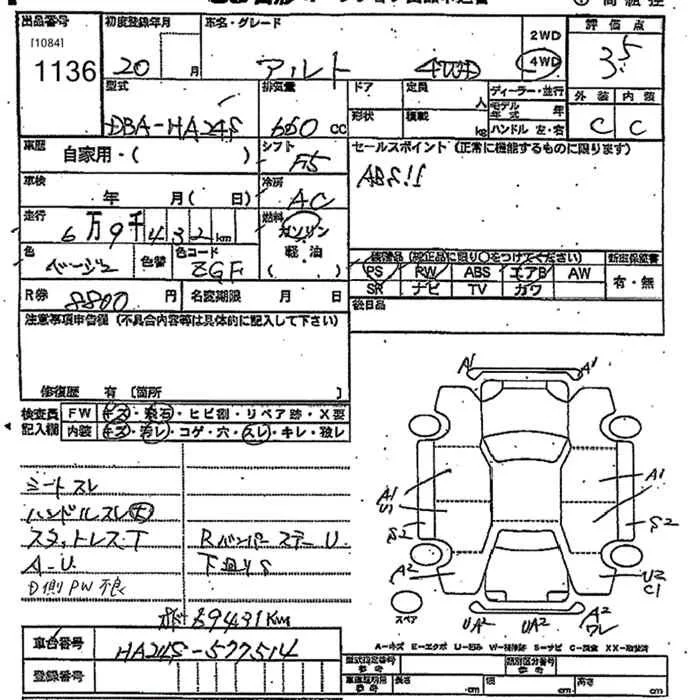 出品番号 初度登録年月 車名・グレード 評価点
[1084]
1136
20 月 アルト 4WD
2WD
4WD
3.5
型式 排気量 ドア 定員 人 ディーラー・並行
外装 内装
DBA-HA24S 660 CC 形状 積載 kg モデル年式 年
ハンドル 左・右
C C
車歴 自家用・( ) シフト F5
セールスポイント(正常に機能するものに限ります)
ABS!!
車検 年 月( 日) 冷房 AC
走行 6万9千432km 燃料 ガソリン
軽・油
( )
色 ベージュ 色替 色コード ZGF
装備品(純正品に限り○をつけてください) 新車保証書
PS RW ABS エアB AW 有・無
SR ナビ TV カワ
R券 8800円 名変期限 月 日
後日品
注意事項申告欄(不具合内容等は具体的に記入して下さい)
修復歴 有 [箇所 ]
検査員 FW キズ・飛石・ヒビ割・リペア跡・X要
記入欄 内装 キズ・汚レ・コゲ・穴・スレ・キレ・破レ
シートスレ
ハンドルスレ大
スタットレス・T Rバンパーステー U.
A-U 下廻りS
D側PW不良
69431Km
A1 A1
A1 U1 A1
S2 S2
A2 U2 C1
スペア UA2 UA2 A2 ワレ
A=キズ E=エクボ U=凹み W=補修跡 S=サビ C=腐食 XX=取替済
車台番号 HA24S-577514
型式指定番号 参考 類別区分番号 参考
登録番号
車庫証明用 参考 長さ cm 幅 cm 高さ cm